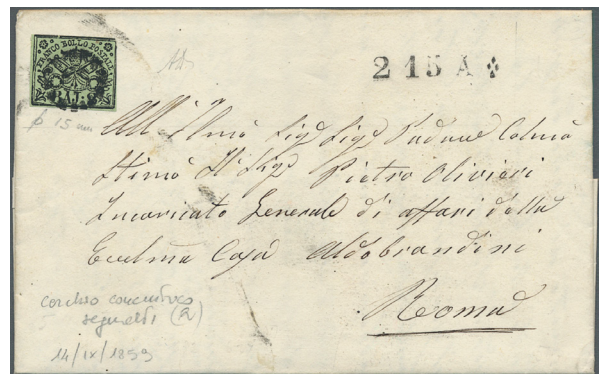 FRANCO BOLLO POSTALE
BAJ
2 15 A
15 mm
All' Illmo Sigr Sigr Padne Colmo
Stimo Il Sigr Pietro Olivieri
Incaricato Generale di affari della
Ecclma Casa Aldobrandini
Roma
(2)
14/IX/1859